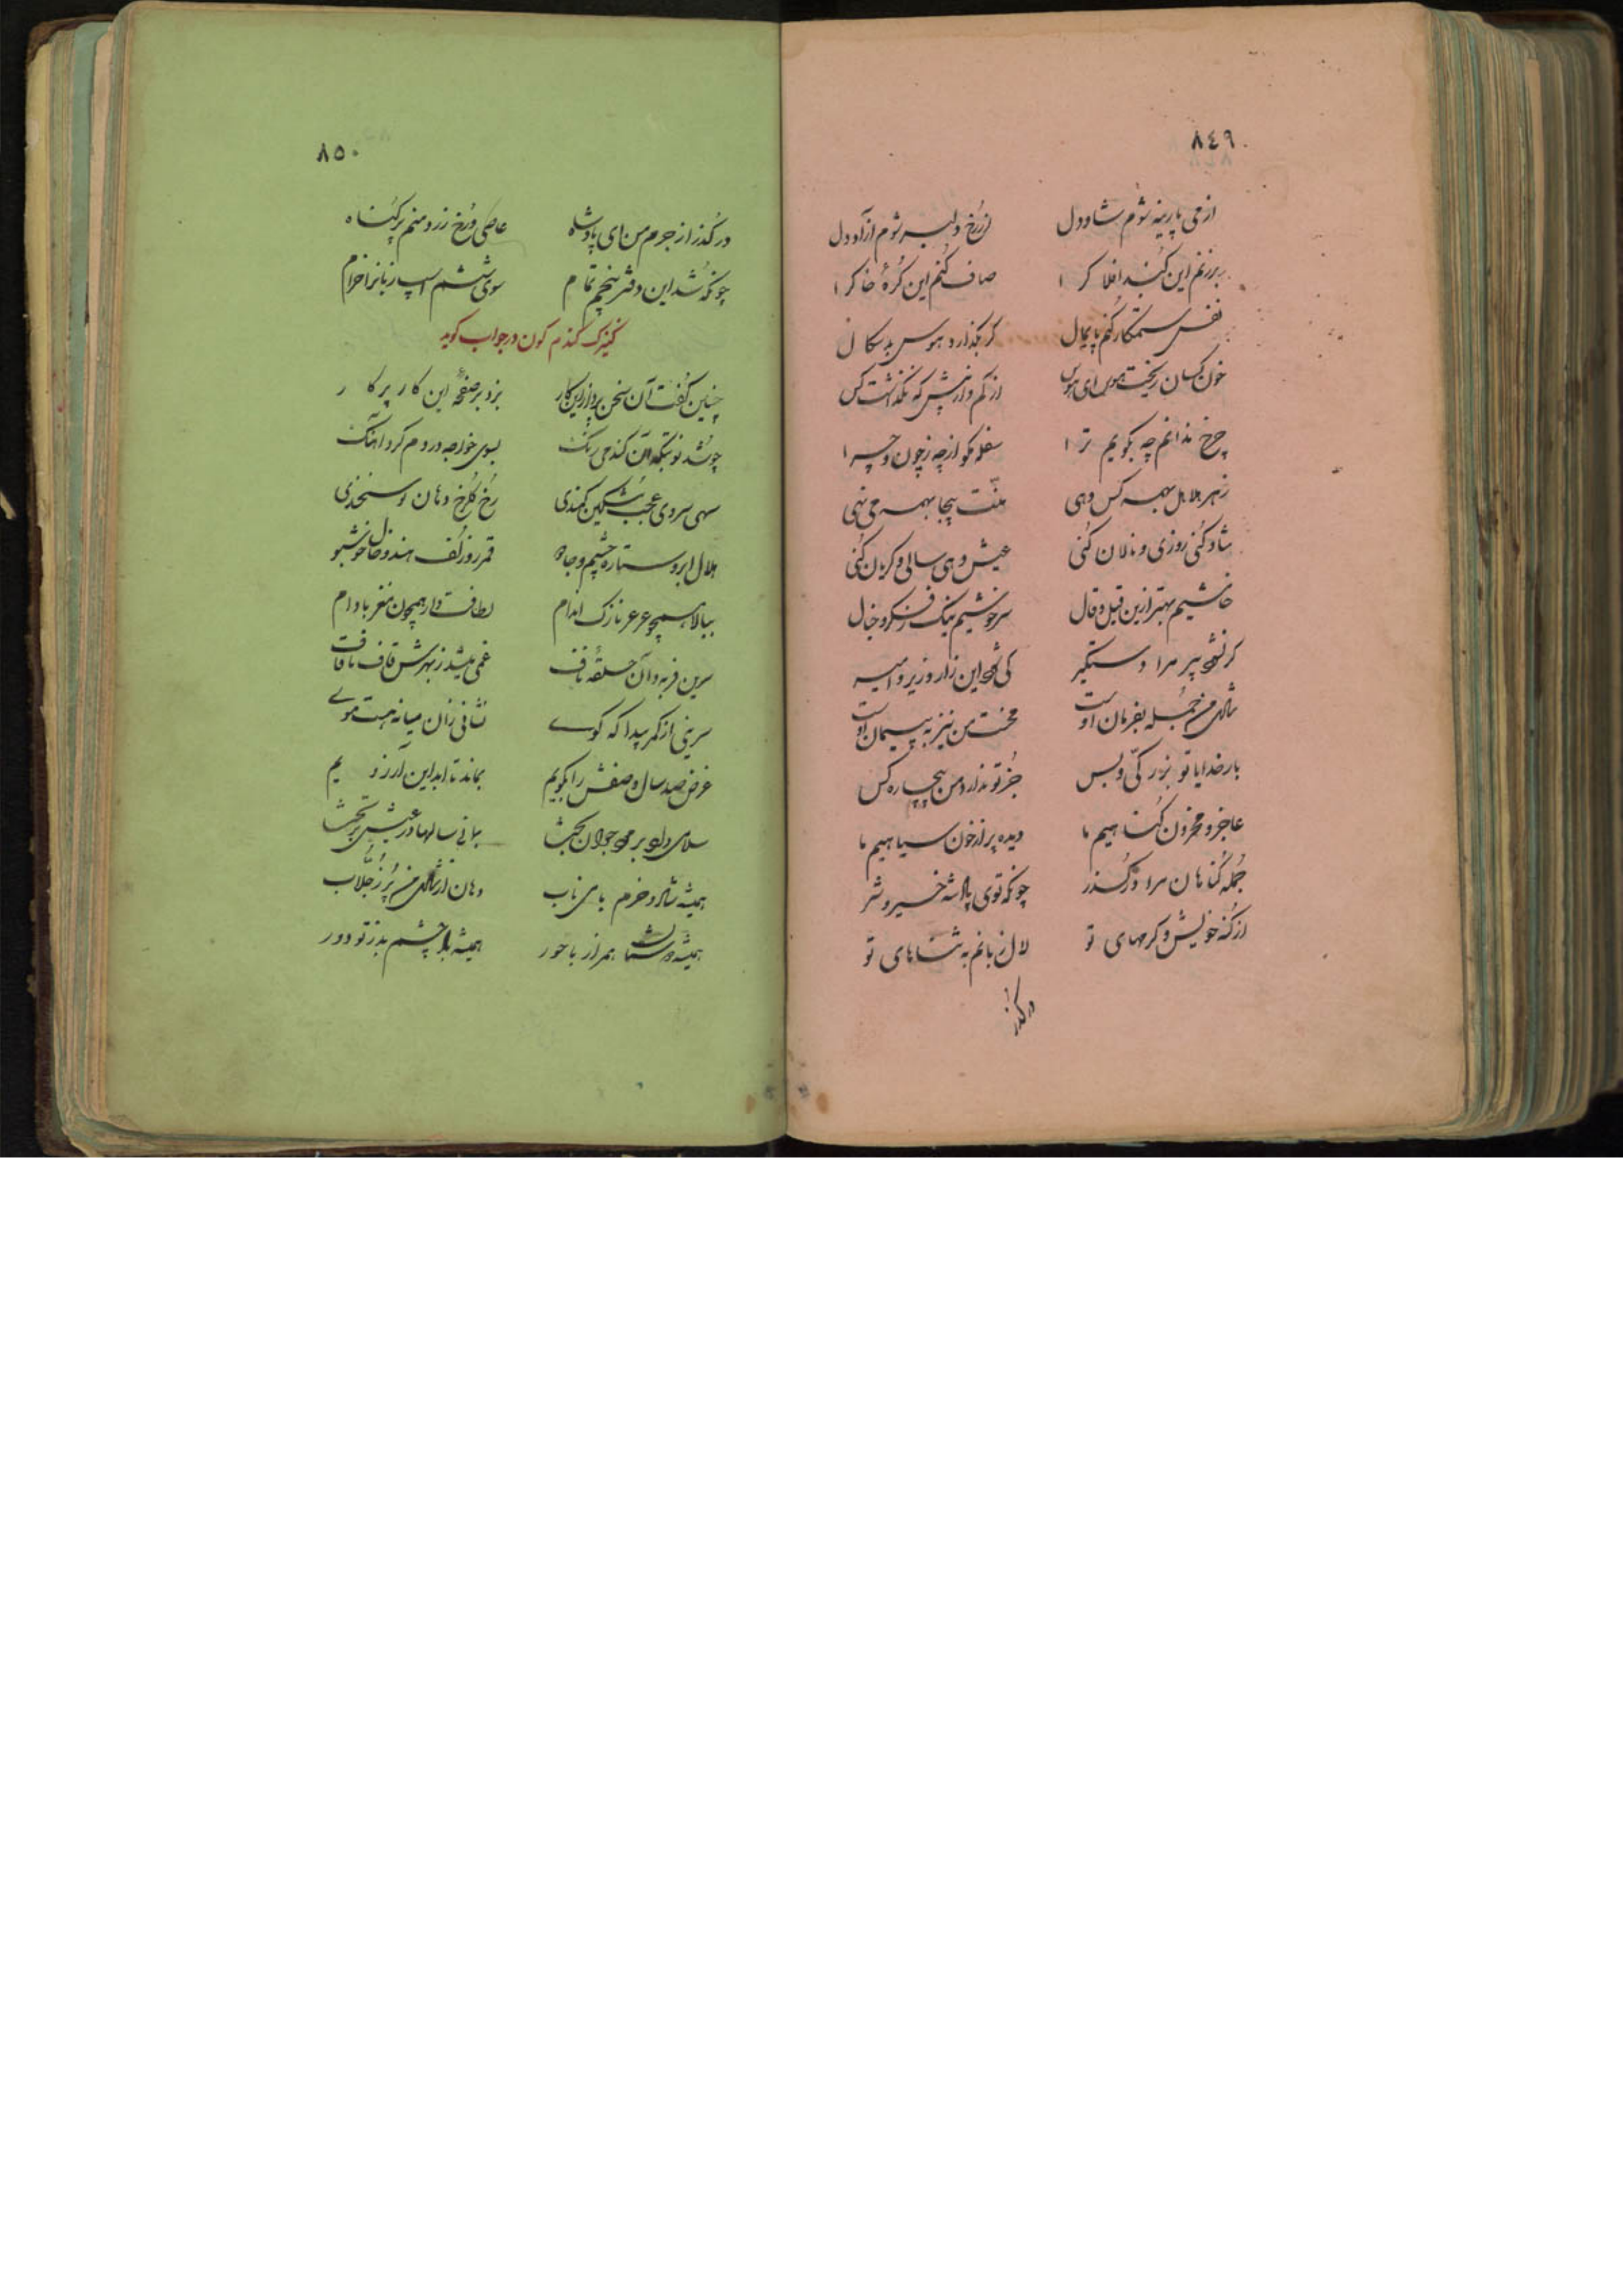 ٨٤٩
از می پارینه شوم شاد دل از رخ دلبر شوم آزاد دل
برزنم این گنبد افلاک را صاف کنم این کرهٔ خاک را
نفس ستمکار کنم پایمال گر بگذارد هوس بد سکال
خون کسان ریخت هوس ای هوس از کم و از بیش که نگذشت کس
چرخ ندانم چه بگویم ترا سفله مگو از چه ز چون و چرا
زهر هلاهل بهمه کس دهی منّت بیجا بهمه می نهی
شاد کنی روزی و نالان کنی عیش دهی سالی و گریان کنی
خامشیم بهتر ازین قیل و قال سرخوشیم نیک ز فکر و خیال
گر نشود پیر مرا دستگیر کی شود این زار وزیر و امیر
شادی من جمله بفرمان اوست محنت من نیز به پیمان اوست
بار خدایا تو بزرگی و بس جز تو ندارد من بیچاره کس
عاجز و محزون گناهیم ما دیده پر از خون سیاهیم ما
جمله گناهان مرا درگذر چونکه توی پادشه خیر و شر
از گنه خویش و کرمهای تو لال زبانم به ثناهای تو
درگذر
٨٥٠
درگذر از جرم من ای پادشاه عاصی و رخ زرد منم پر گناه
چونکه شد این دفتر پنجم تمام سوی ششم اسپ زبانرا خرام
کنیزک گندم گون در جواب گوید
چنین گفت آن سخن پرداز این کار بزد بر صفحهٔ این کار پرکار
چو شد نوبتگه آن گندمی رنگ بسوی خواجه در دم کرد آهنگ
سهی سروی عجب مشکین کمندی رخ گلرخ دهان نوشخندی
هلال ابرو ستاره چشم و جادو قمر رو زلف هندو خال خوشبو
ببالا همچو عرعر نازک اندام لطافت وار همچون مغز بادام
سرین فربه و آن حلقهٔ ناف غمی میشد ز بهرش قاف تا قاف
سرینی از کمر پیدا که کوے نشانی زان میانه هست موے
غرض صد سال وصفش را بگویم بماند تا ابد این آرزویم
سلامی داد بر مرد جوان بخت بمانی سالها در عیش بر تخت
همیشه شاد و خرم با می ناب دهان از شادی من پر ز جلّاب
همیشه دولتت همراز با حور همیشه باد چشم بد ز تو دور